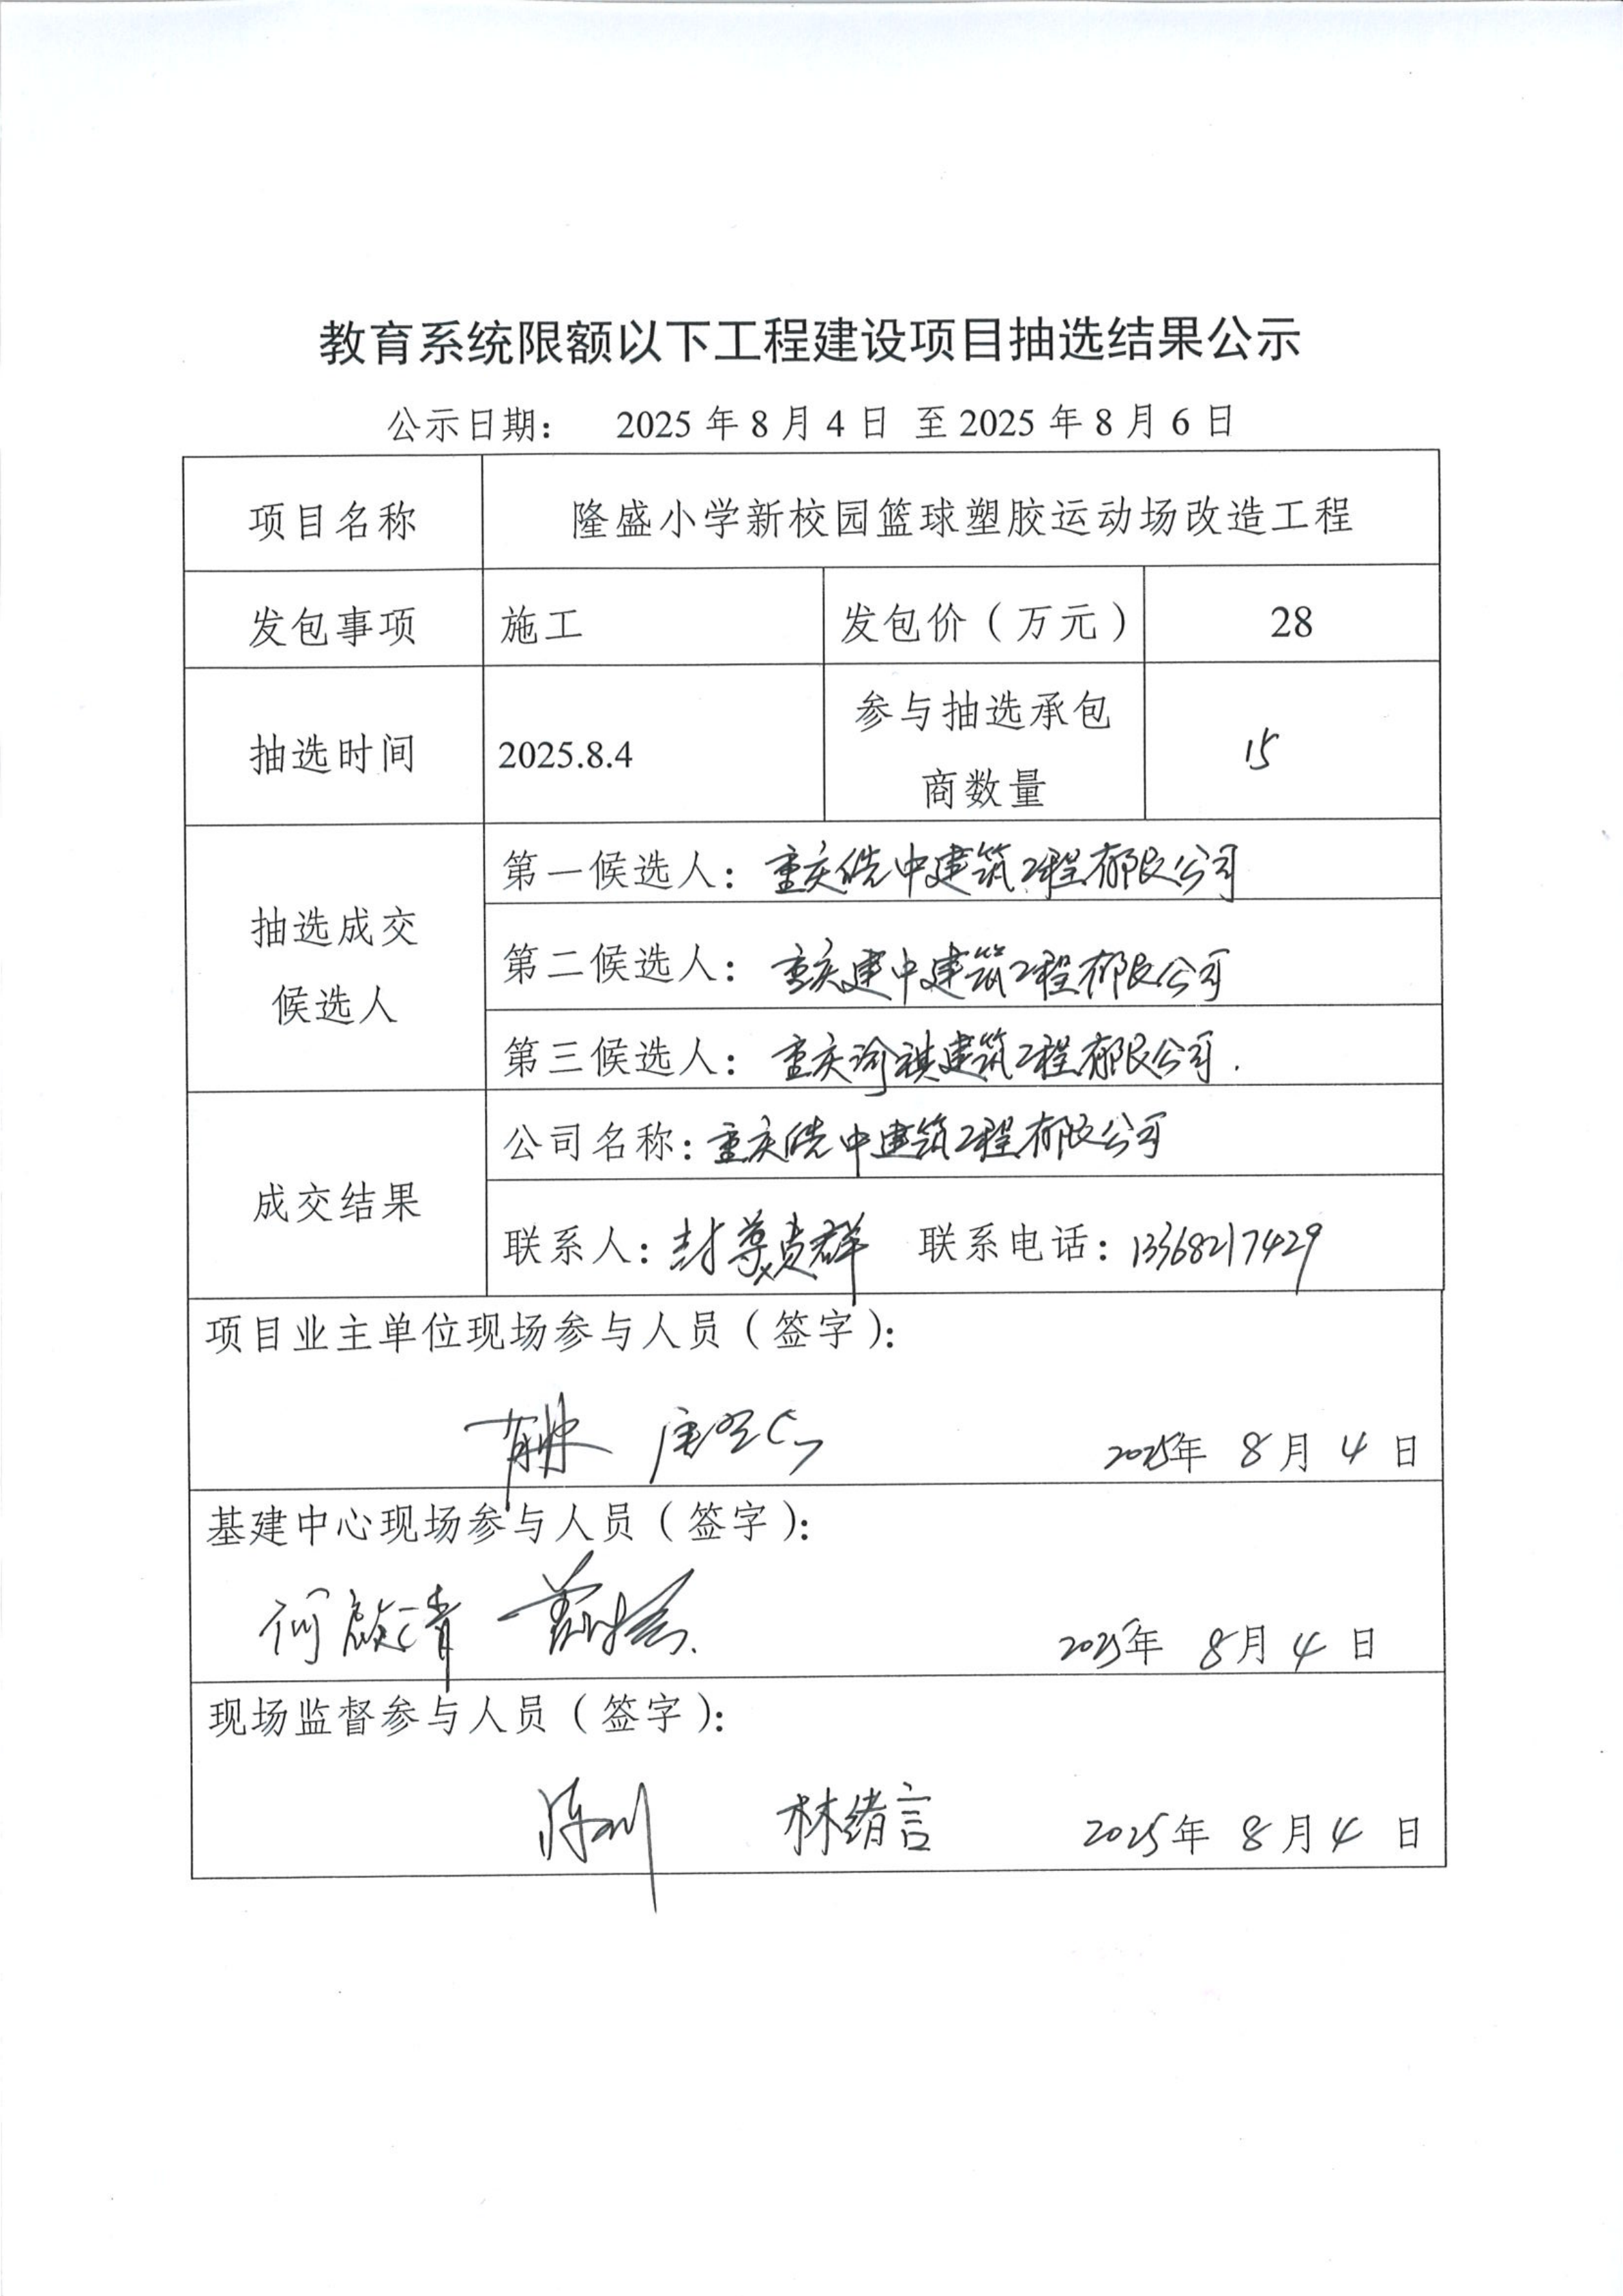 教育系统限额以下工程建设项目抽选结果公示
公示日期： 2025年8月4日 至2025年8月6日
项目名称 隆盛小学新校园篮球塑胶运动场改造工程
发包事项 施工 发包价（万元） 28
抽选时间 2025.8.4 参与抽选承包商数量 15
抽选成交候选人
第一候选人：重庆皓中建筑工程有限公司
第二候选人：重庆建中建筑工程有限公司
第三候选人：重庆渝祺建筑工程有限公司.
成交结果
公司名称：重庆皓中建筑工程有限公司
联系人：封尊贵群 联系电话：13368217429
项目业主单位现场参与人员（签字）：
2025年 8月 4日
基建中心现场参与人员（签字）：
何啟清
2025年 8月4日
现场监督参与人员（签字）：
林绪言 2025年 8月4日